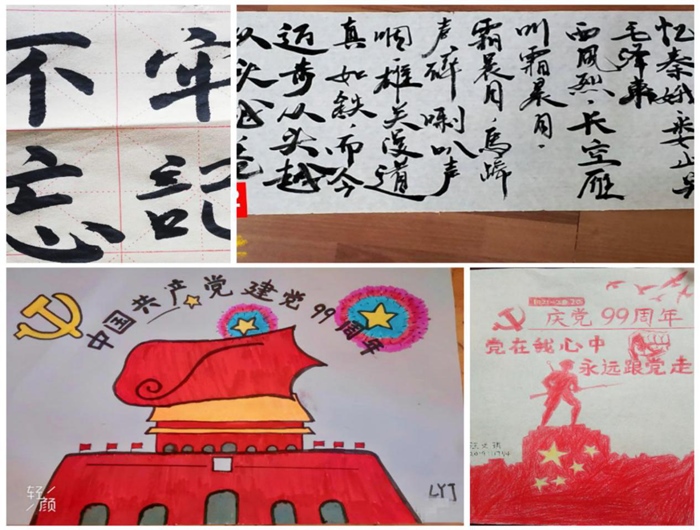 牢記
不忘
忆秦娥娄山关
毛泽东
西风烈，长空雁
叫霜晨月。
霜晨月，马蹄
声碎，喇叭声
咽雄关漫道
真如铁，而今
迈步从头越
从头越
中国共产党建党99周年
LYJ
轻颜
庆党99周年
党在我心中
永远跟党走